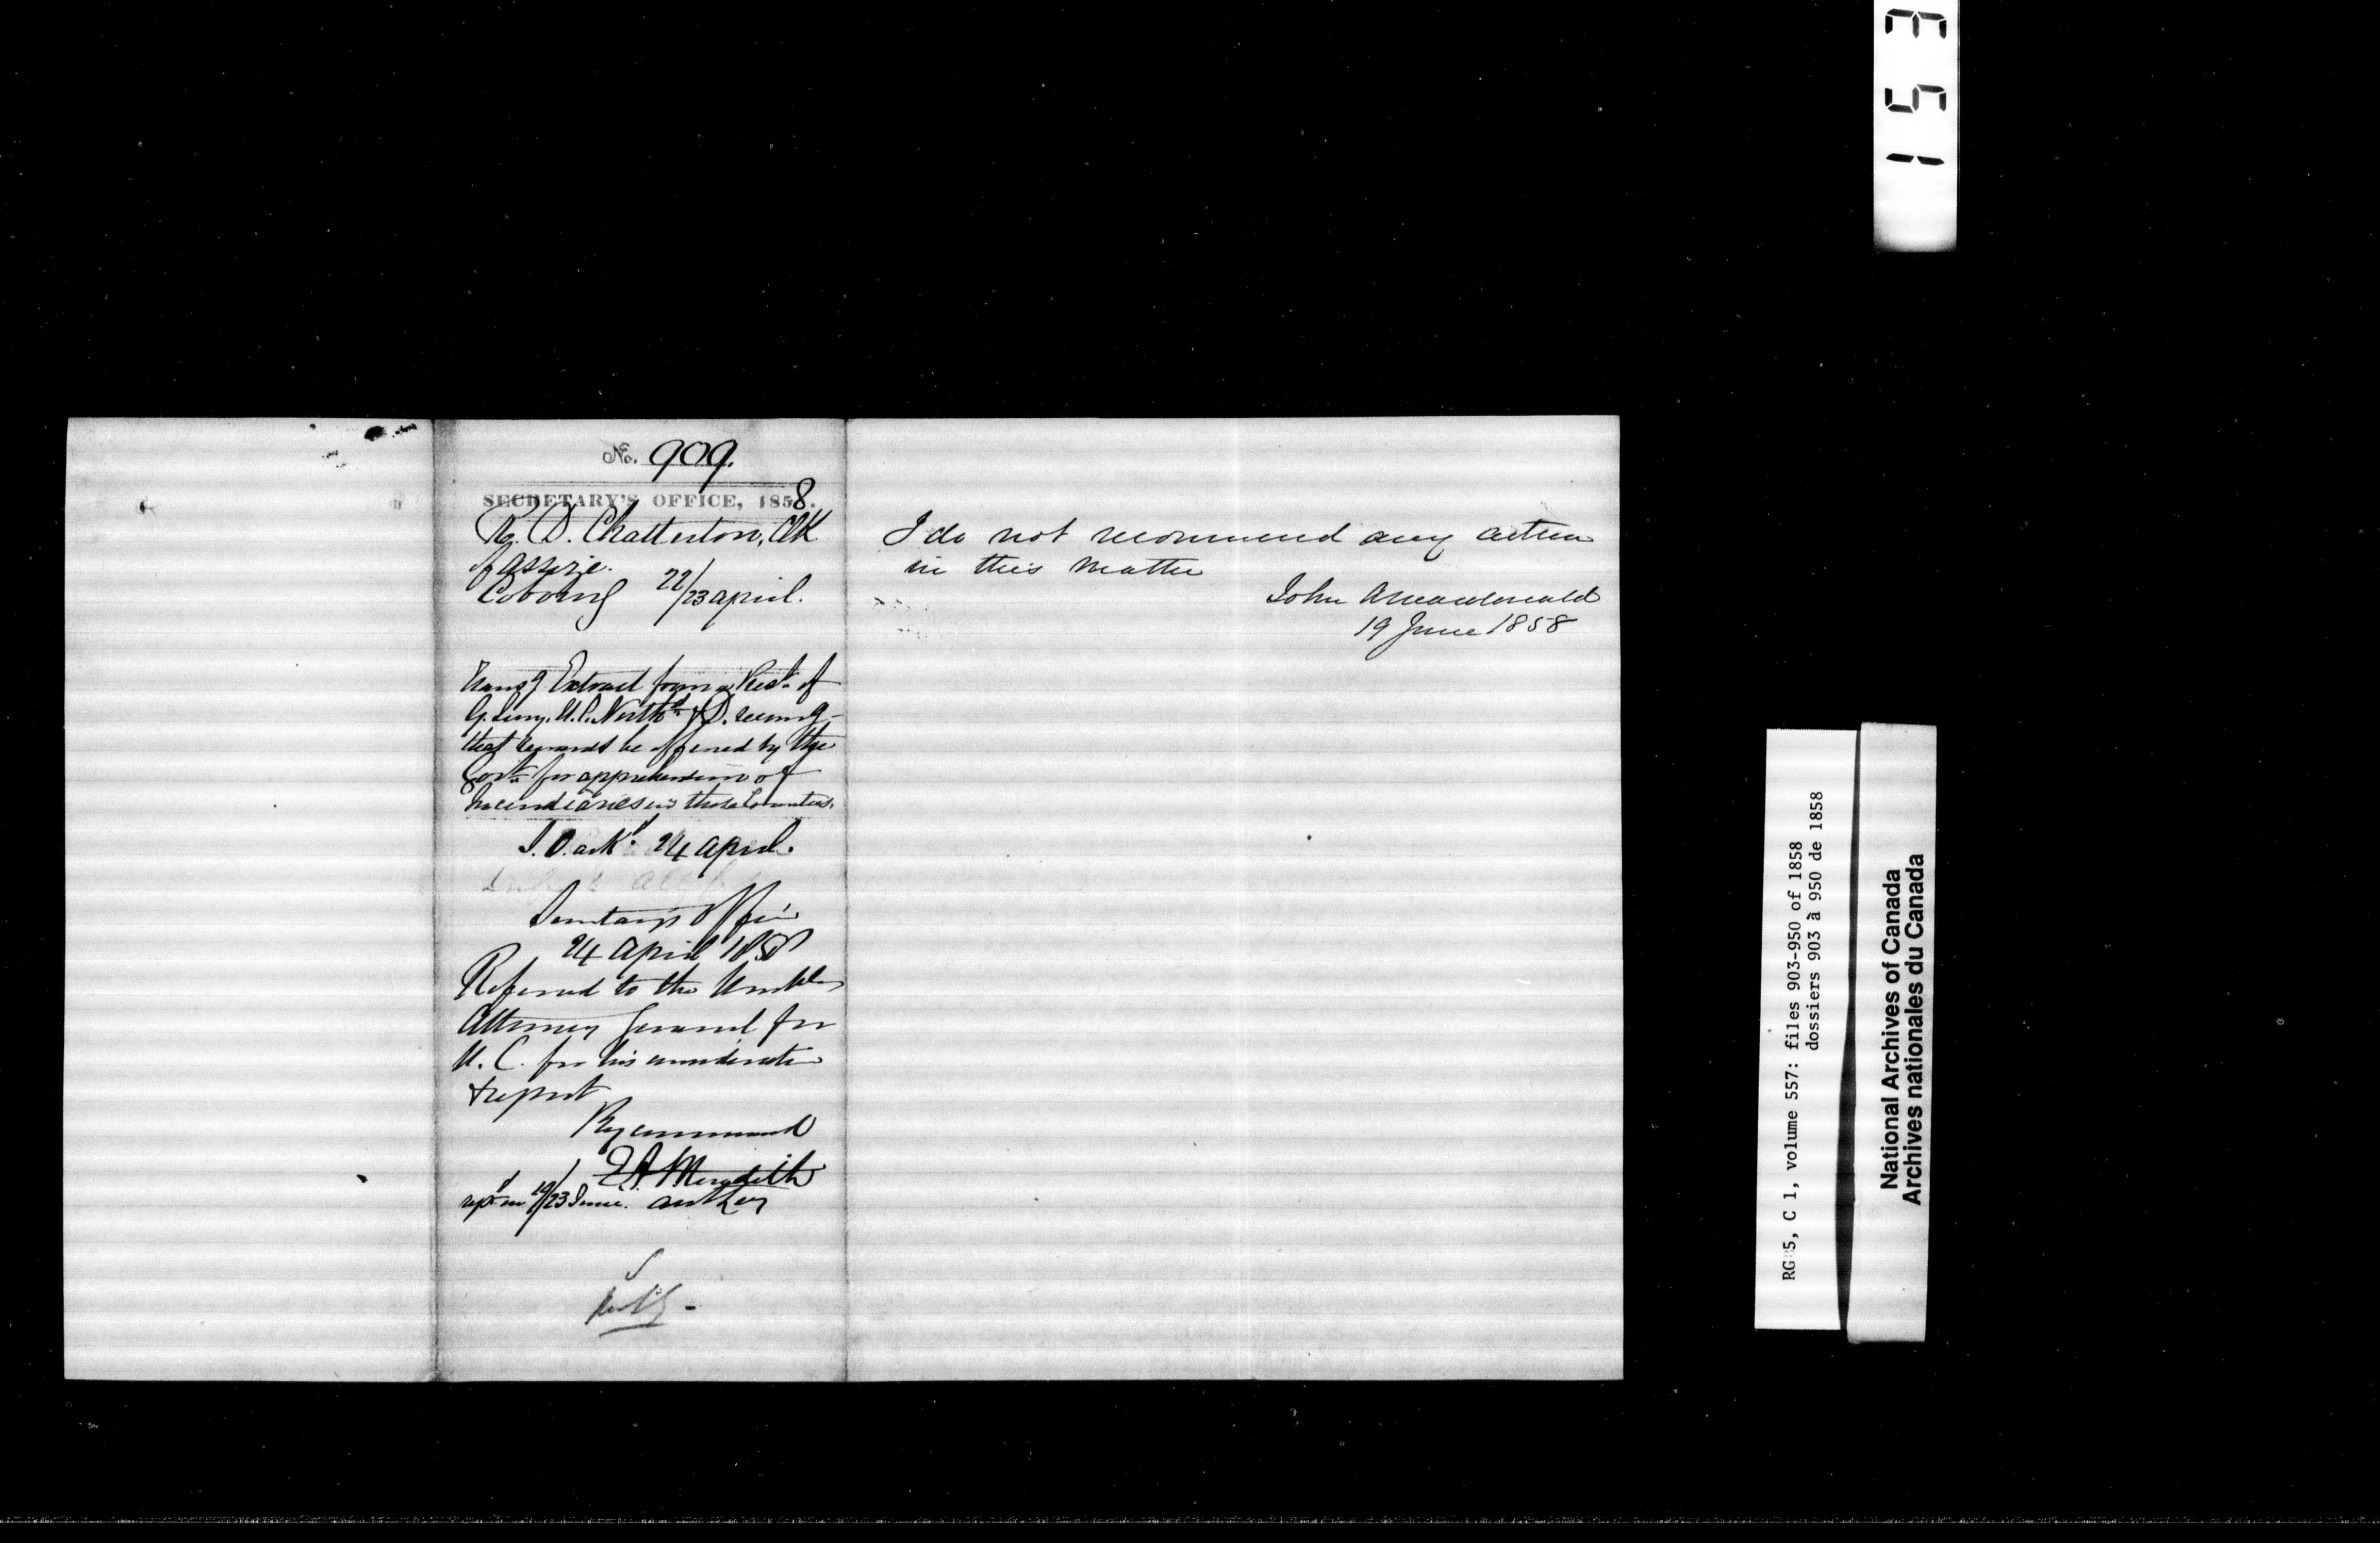 No. 909.
SECRETARY'S OFFICE, 1858.
R. D. Chatterton, Clk
of Assize.
Cobourg 22/23 April.
Trans.g Extract from a Pres.t of
G. Jury, U.C. North.d & D. recom.g
that rewards be offered by the
Gov.t for apprehension of
Incendiaries in those Counties.
24 April.
Secretary's Office
24 April 1858
Referred to the Honble
Attorney General for
U. C. for his consideration
& report
By command
E A Meredith
rep.d on 19/23 June.
I do not recommend any action
in this matter
John A Macdonald
19 June 1858
153
RG 5, C 1, volume 557: files 903-950 of 1858
dossiers 903 à 950 de 1858
National Archives of Canada
Archives nationales du Canada